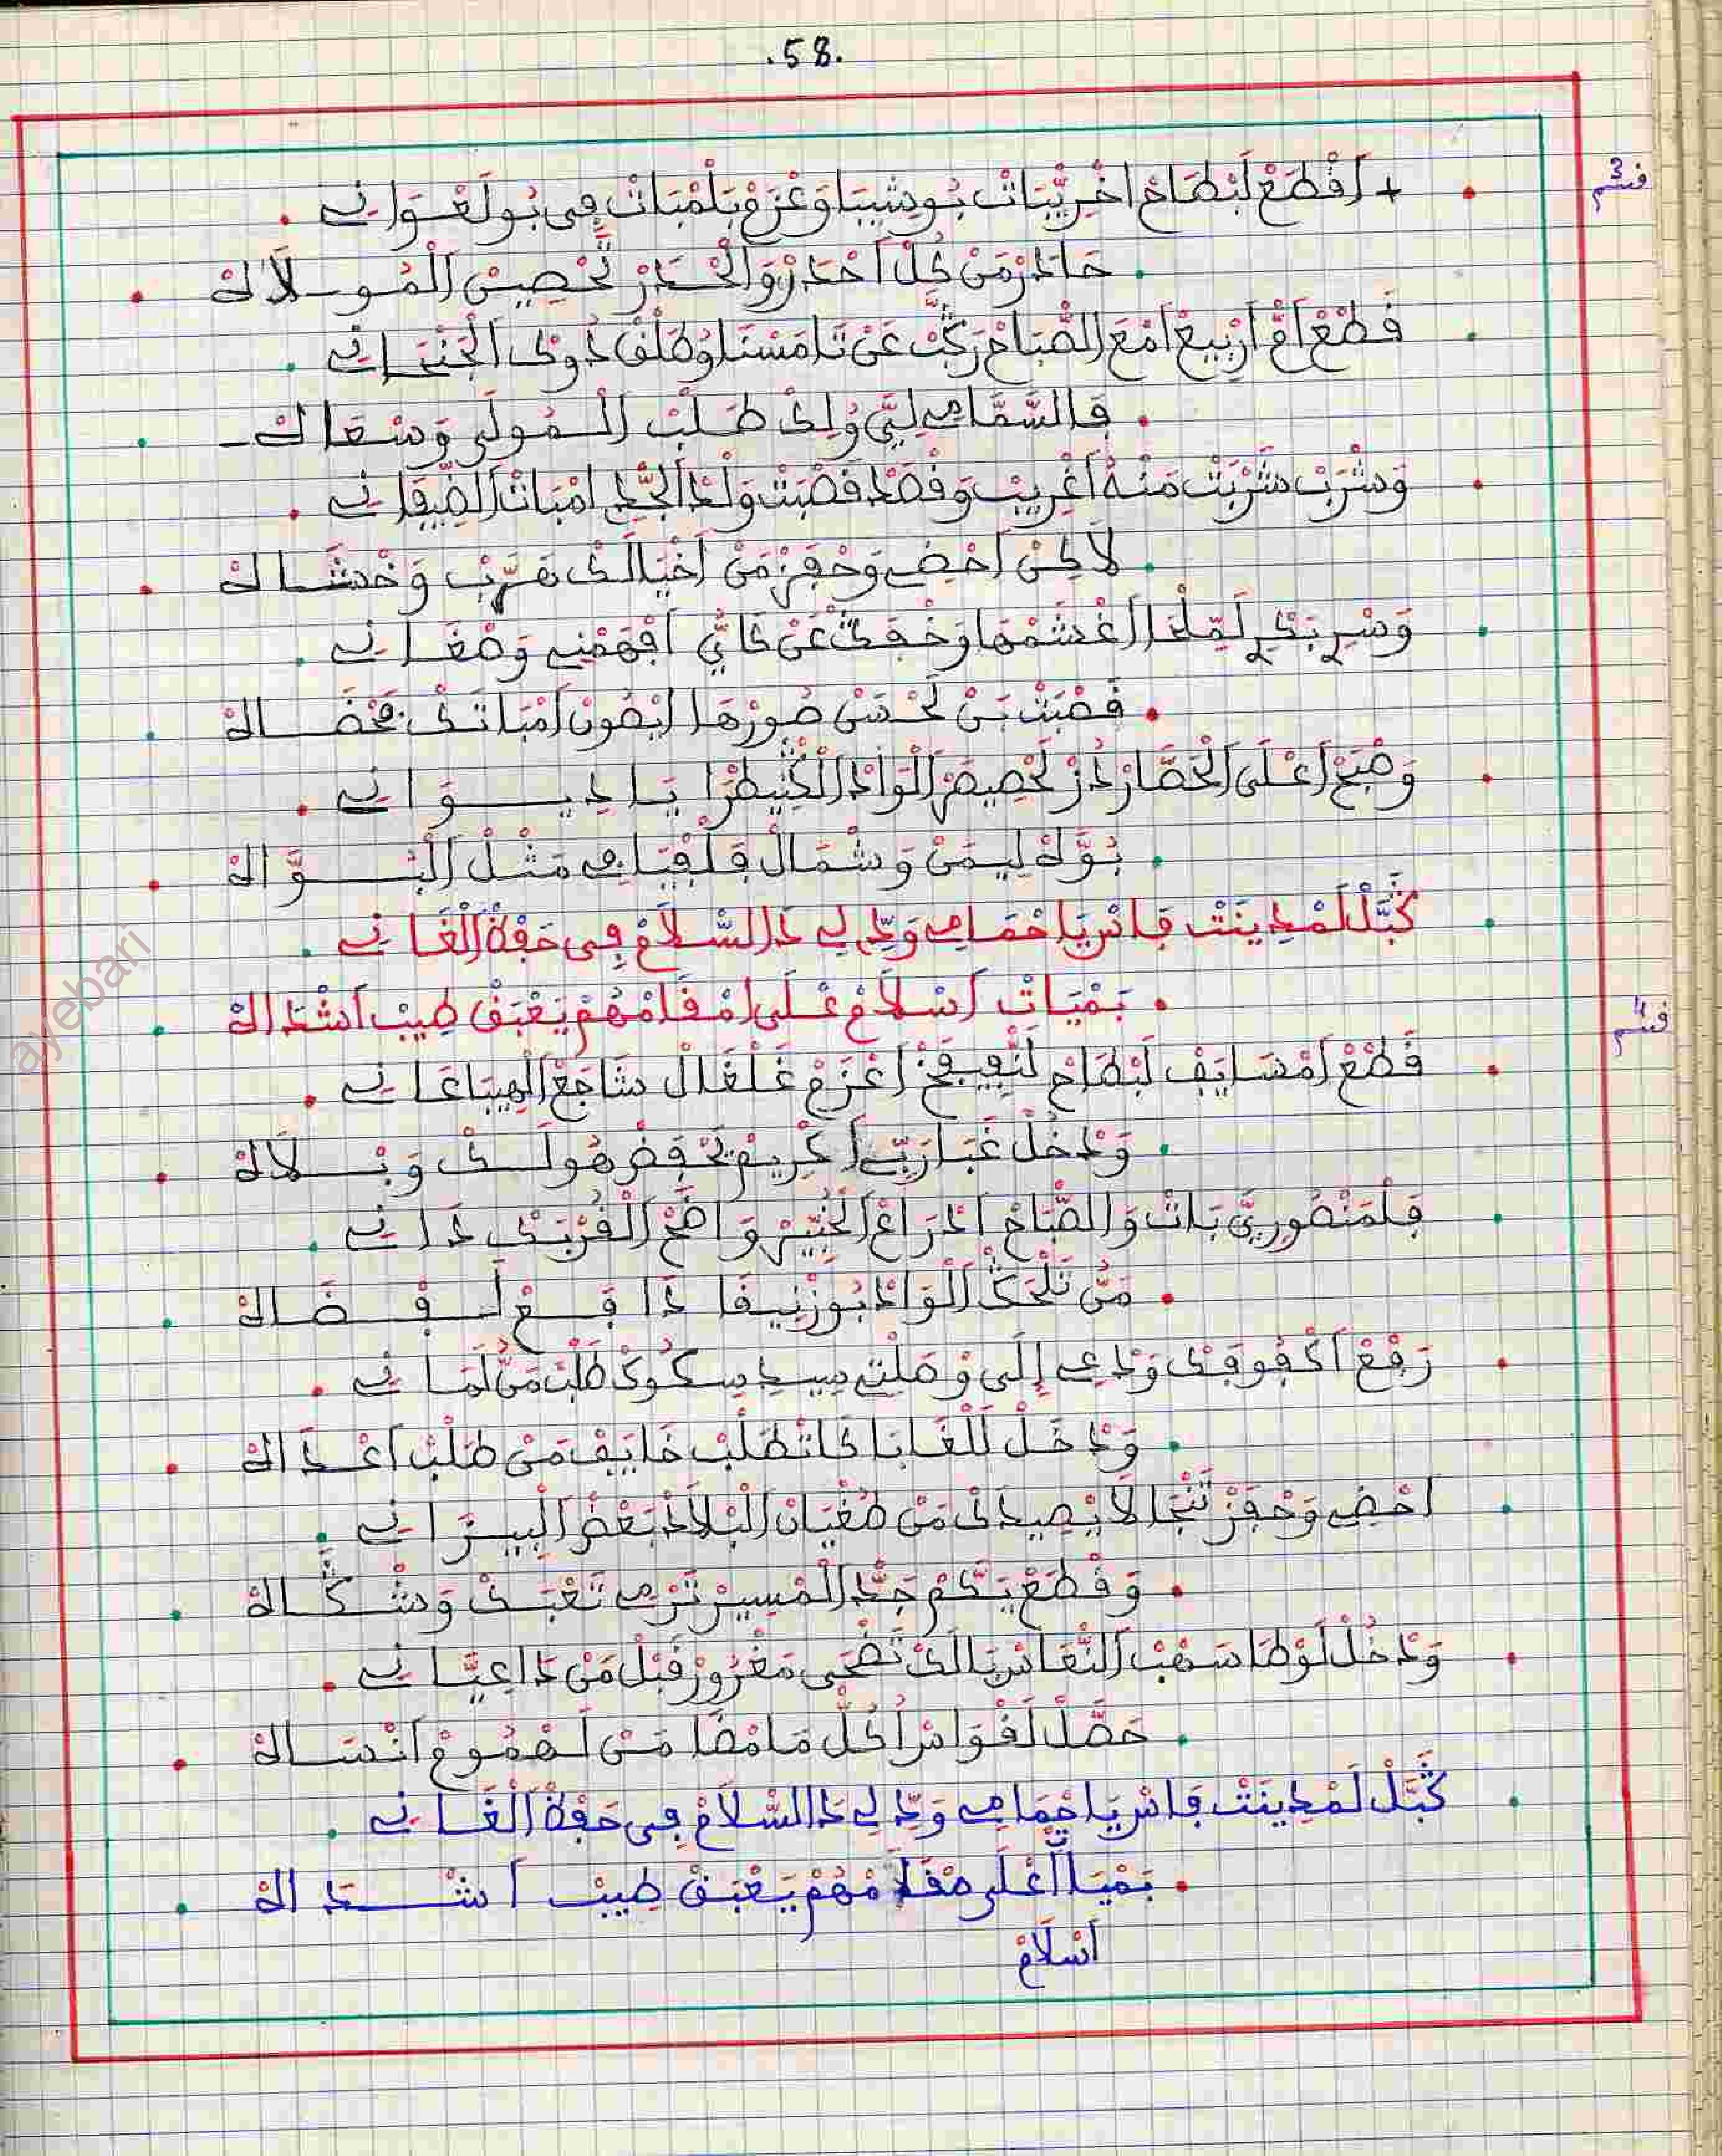 .58.
قسم 3
+ أَقْطَعْ لَبْطَاحْ اخْرِيّبَاتْ بُوشِيبَا وَعْزَمْ بَلْمْبَاتْ فِى بُولَعْوَانِ
حَادَرْ مَنْ كُلْ أَحْدَرْ وَالْحْدَرْ تَحْصِينْ الْمُوسلاَكْ
قَطْعْ أُمْ أَرْبِيعْ امْعَ الصْبَاحْ رَكَّبْ عَنْ تَامَسْنَا وُطَلْقْ دُوكْ الْجَنْحَانِ
فَالسّمَامِ لِيَّ وُلِكْ طَلْبْ الْمُولَى وَسْعَاكْ
وَشْرَبْ شَرْبَتْ مَنْهُ أَغْرِيبْ وَقْصَدْ قَصْبَتْ وَلْدْ الجّدِ امْبَاتْ الضِّيقَانِ
لاَكِنْ أَحْضِ وَحْفِزْ مَنْ أَخْيَالَكْ هَرَّبْ وَخْدشَاكْ
وَسْرِ بَكْرِ لَمّلْحَا اغْشَمْهَا وَخْفَى عَنْ كَايّ أَفْهَمْنِي وَصْغَانِ
قَصْبَتْ بَنْ لَحْسَنْ صُورْهَا ايْصُونْ أَمْبَاتَكْ مَحْضَاكْ
وَصْبَحْ أَعْلَى الْحَصَّارْ دُزْ لَحْصِيصَرْ الْوَادْ الْكْنِيطْرَا يَا دِيوَانِ
بُوّكْ لِيمَنْ وَشْمَالْ فَلْفْيَافِ مَثْلْ الْبُوَّاكْ
كَبَّلْ لَمْدِينَتْ فَاسْ يَا حْمَامِ وَدِّ لِي دَ السّلاَمْ فِى حَفْظْ الْغَانِ
بَمْيَاتْ أَسْلاَمْ عْلَى امْقَامْهُمْ يَعْبَقْ طِيبْ أَشْدَاكْ
قسم 4
قَطْعْ أَمْسَايَفْ لَبْطَاحْ لَنْفِيفَخْ أَعْزَمْ غَلْغَالْ شَاجَعْ الْهِيبَاعَانِ
وَدْخُلْ غَبَا رَبِّي أَكْرِيمْ تَحْفَضْ هُولَكْ وَبْلاَكْ
فَلْمَنْصُورِيَّ بَاتْ وَالصّبَاحْ ادْرَاعْ الْخْبِيزْ وَاضَحْ الْقُرْبَكْ دَانِ
مَنْ تَلْحَكْ الْوَادْ بُوزْنِيقَا دَافِعْ أَقْصَاكْ
رَفْعْ أَكْفُوفَكْ وَدْعِ إِلَى وْصَلْتِ سِيدِ سْكُوكْ طَلْبْ مَنُّ لَمَانِ
وَدْخَلْ لَلْغَابَا كَاتْطَلْبْ خَايَفْ مَنْ طَلْبْ أَعْدَاكْ
احْضِ وَحْفِزْ تَنْجَا لاَ يْصِيدَكْ مَنْ طُغْيَانْ الْبْلاَدْ بَعْضْ الْبِيزَانِ
وَقْطَعْ يَكّمْ جَدّ الْمْسِيرْ تَرْمِ تَعْبَكْ وَشْكَاكْ
وَدْخُلْ لَوْطَا سَهْبْ النّعَاسْ يَالَكْ تَضْحَى مَغْرُورْ قَبْلْ مَنْ دَا عِيّانِ
حَصّلْ لَفْوَاسْ اُكُلّ مَامْضَا مَنْ لَهْمُومْ أَنْسَاكْ
كَبَّلْ لَمْدِينَتْ فَاسْ يَا حْمَامِ وَدِّ لِي دَ السّلاَمْ فِى حَفْظْ الْغَانِ
بَمْيَاتْ أَعْلَى مْقَامْهُمْ يَعْبَقْ طِيبْ أَشْدَاكْ
أَسْلاَمْ
ayebari